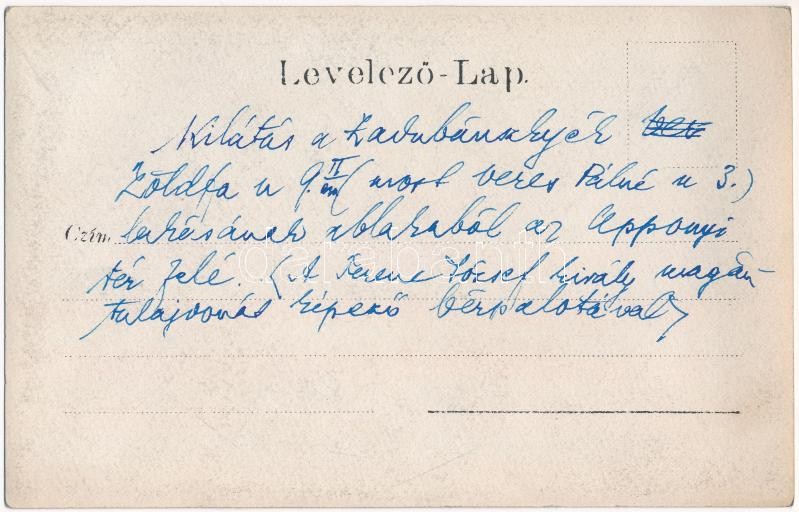 Levelező-Lap.
Kilátás a Zadubánszkyék
Zöldfa u 9. II em (most Veres Pálné u 3.)
Czím. lakásának ablakából az Apponyi
tér felé. (A Ferenc József király magán
tulajdonát képező bérpalotával)